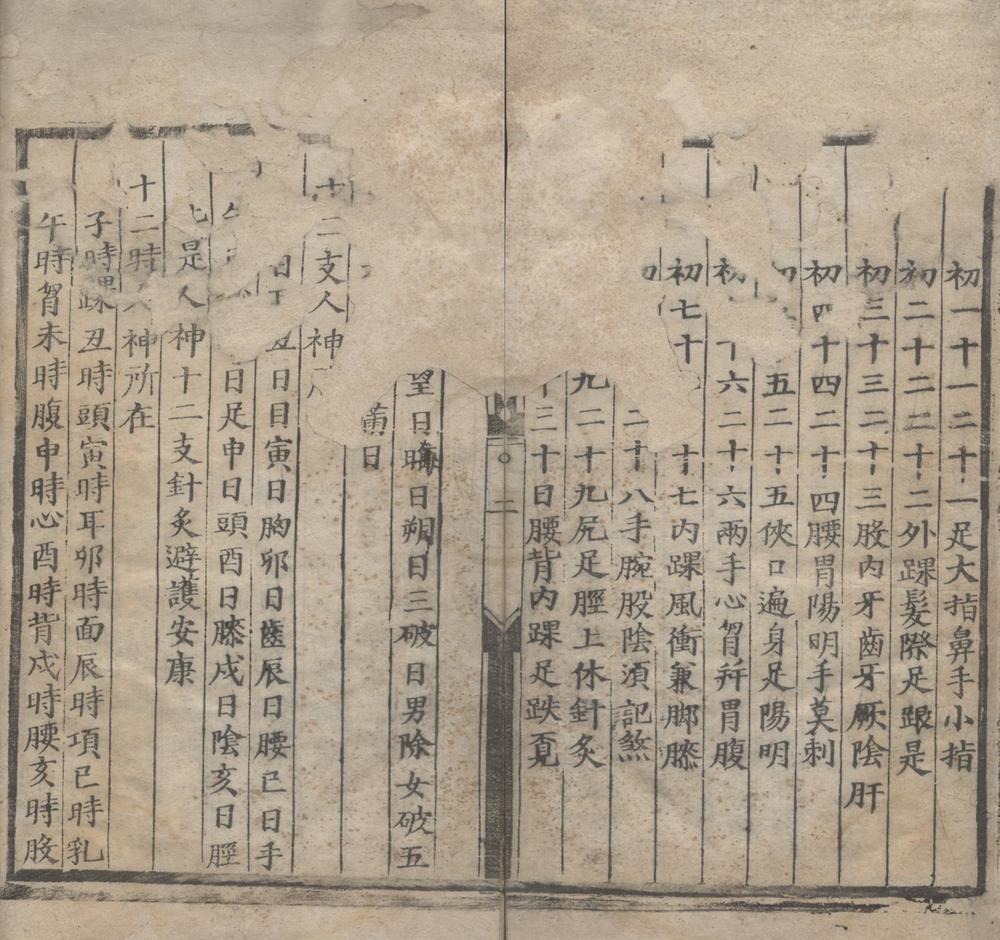 初一十一二十一足大指鼻手小指
初二十二二十二外踝髮際足跟是
初三十三二十三股內牙齒牙厥陰肝
初四十四二十四腰胃陽明手莫刺
五二十五俠口遍身足陽明
初十六二十六兩手心胷并胃腹
初七十十七內踝風衝兼脚膝
初二十八手腕股陰須記煞
九二十九尻足脛上休針灸
十三十日腰背內踝足趺覓
二
望日晦日朔日三破日男除女破五
日
十二支人神
日丑日目寅日胸卯日齒辰日腰巳日手
日足申日頭酉日膝戌日陰亥日脛
是人神十二支針灸避護安康
十二時人神所在
子時踝丑時頭寅時耳卯時面辰時項巳時乳
午時胷未時腹申時心酉時背戌時腰亥時股